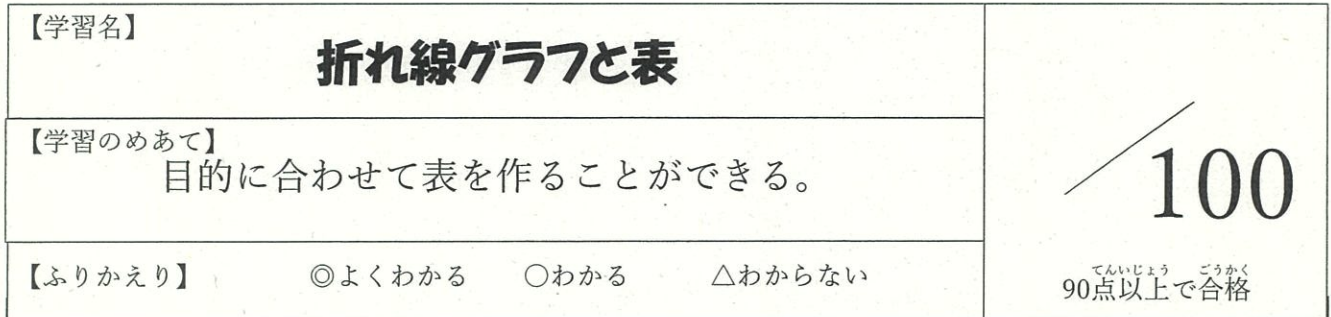 【学習名】
折れ線グラフと表
【学習のめあて】
目的に合わせて表を作ることができる。
【ふりかえり】 ◎よくわかる ○わかる △わからない
/100
てんいじょう ごうかく
90点以上で合格